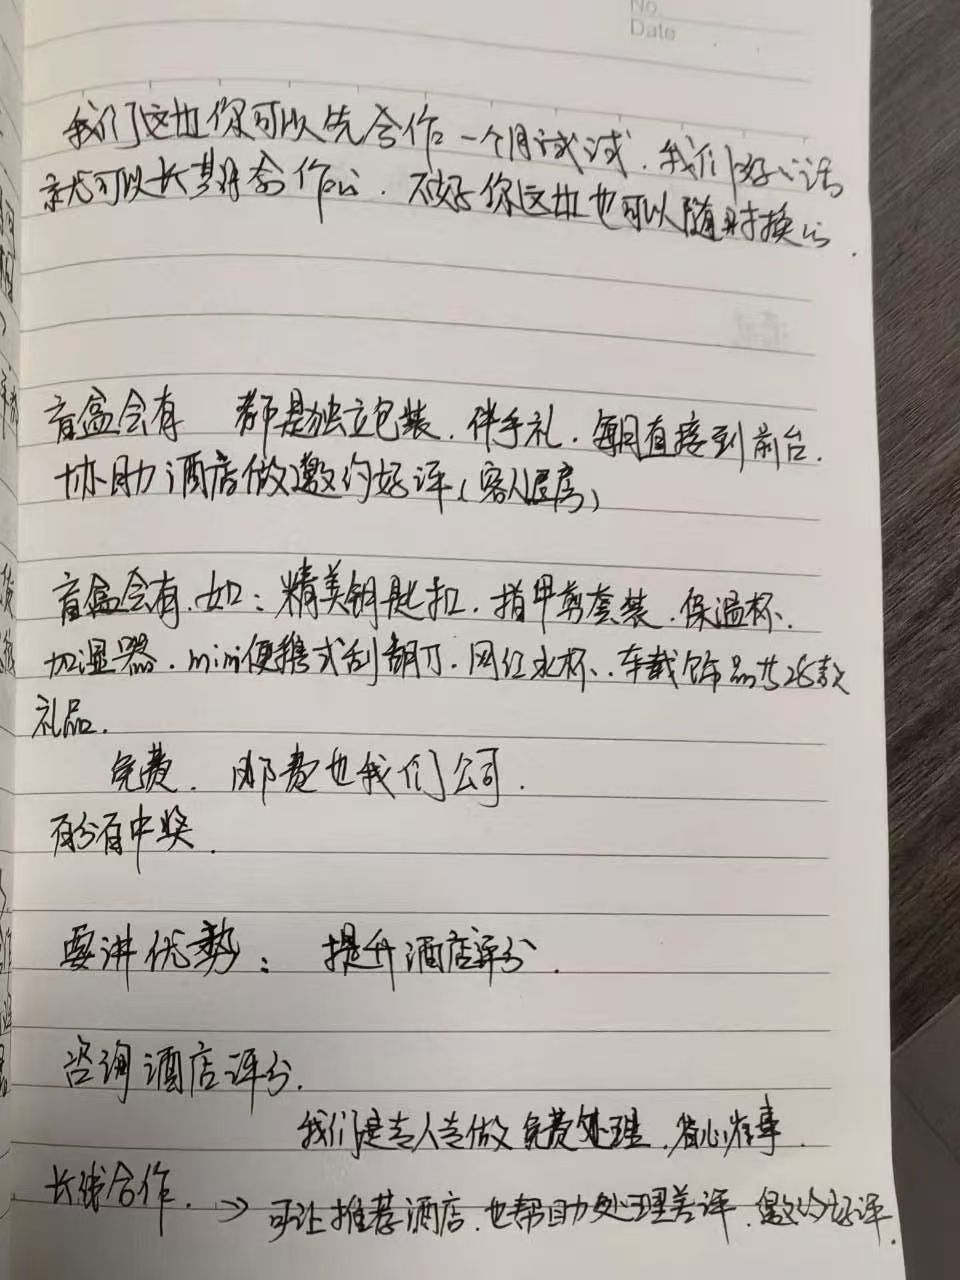 No.
Date
我们这边你可以先合作一个月试试.我们好的话
就可以长期合作的.不好你这边也可以随时换的.
盲盒会有 都是独立包装.伴手礼.每月直接到前台.
协助酒店做邀约好评(客人退房)
盲盒会有.如:精美钥匙扣.指甲剪套装.保温杯.
加湿器.mini便携式刮胡刀.网红水杯.车载饰品共26款
礼品.
免费.邮费也我们公司.
百分百中奖.
要讲优势: 提升酒店评分.
咨询酒店评分.
我们是专人专做免费处理.省心省事.
长线合作.→可让推荐酒店.也帮助处理差评.邀约好评.